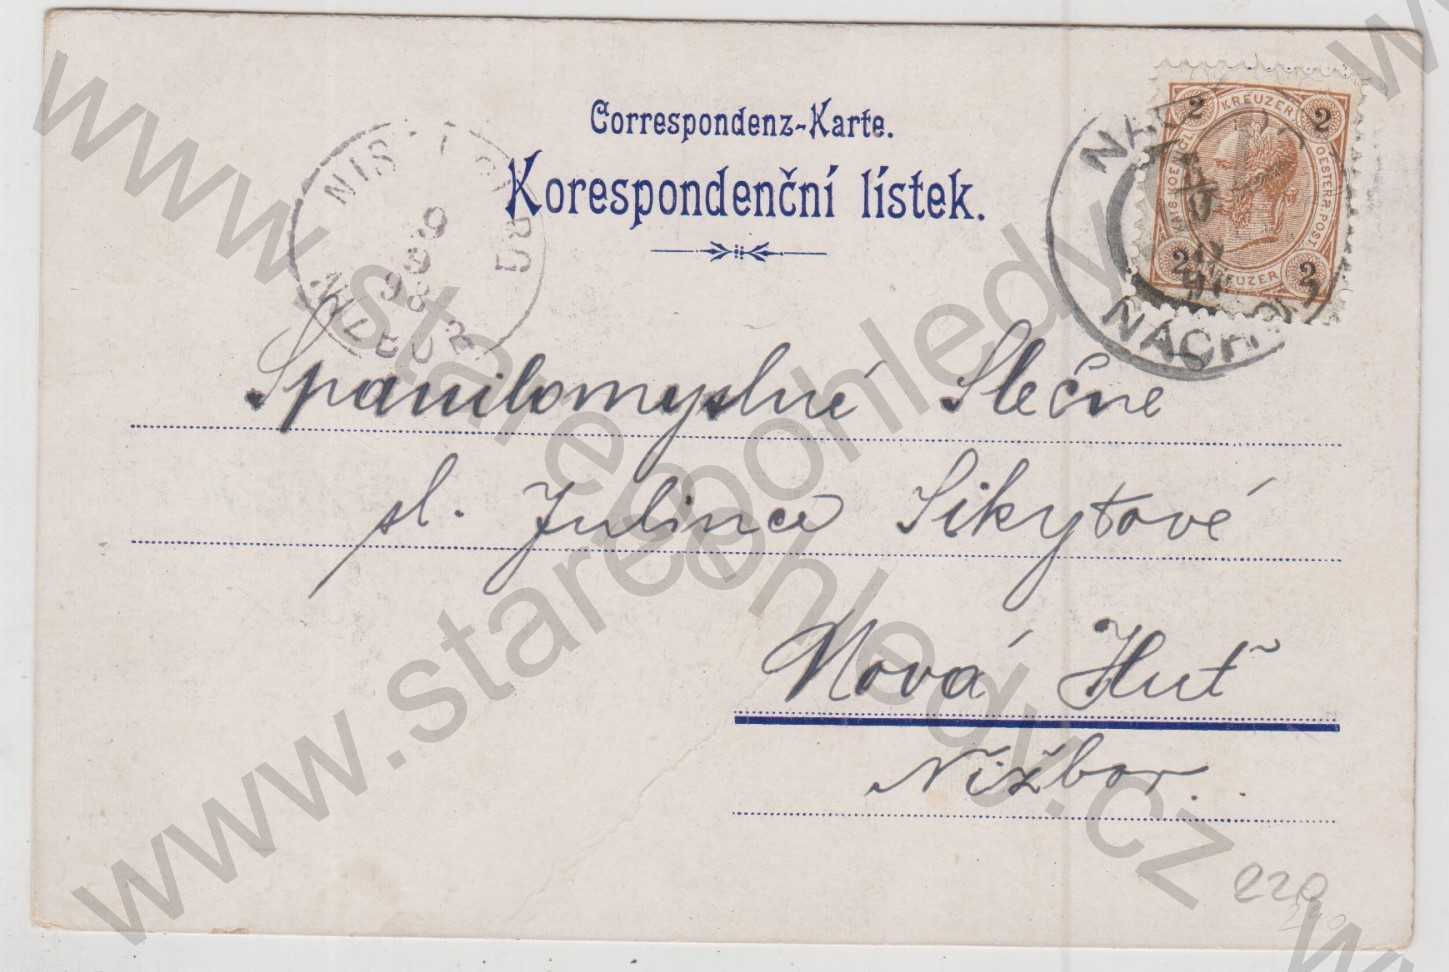 Correspondenz-Karte.
Korespondenční lístek.
2 KREUZER 2
KAIS. KOENIGL. OESTERR. POST
2 KREUZER 2
NÁCHOD
9
98
Spanilomyslné Slečně
sl. Julince Sikytové
Nová Huť
Nižbor.
220
www.starepohledy.cz
www.starepohledy.cz